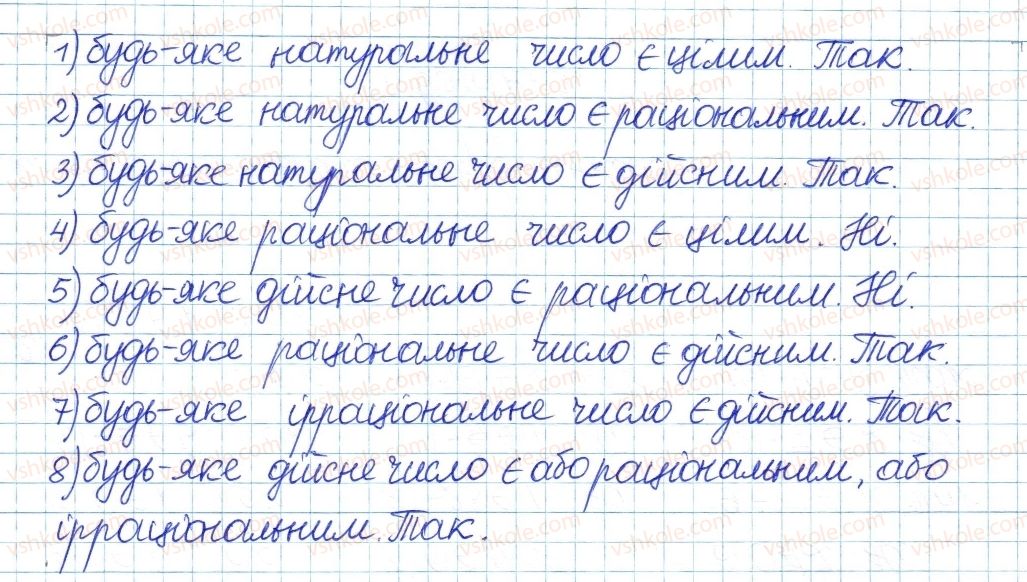 1) будь-яке натуральне число є цілим. Так.
2) будь-яке натуральне число є раціональним. Так.
3) будь-яке натуральне число є дійсним. Так.
4) будь-яке раціональне число є цілим. Ні.
5) будь-яке дійсне число є раціональним. Ні.
6) будь-яке раціональне число є дійсним. Так.
7) будь-яке ірраціональне число є дійсним. Так.
8) будь-яке дійсне число є або раціональним, або
ірраціональним. Так.